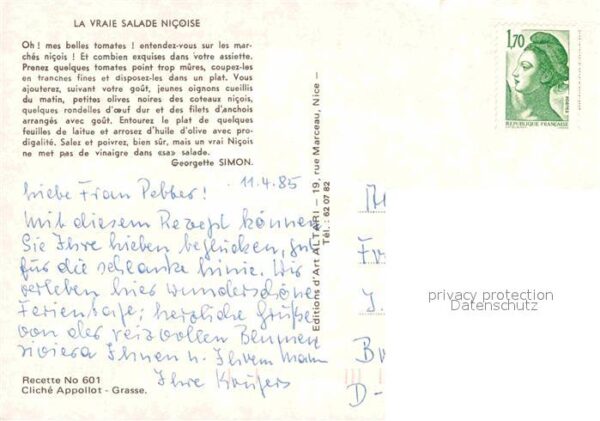 LA VRAIE SALADE NIÇOISE
Oh ! mes belles tomates ! entendez-vous sur les mar-
chés niçois ! Et combien exquises dans votre assiette.
Prenez quelques tomates point trop mûres, coupez-les
en tranches fines et disposez-les dans un plat. Vous
ajouterez, suivant votre goût, jeunes oignons cueillis
du matin, petites olives noires des coteaux niçois,
quelques rondelles d'œuf dur et des filets d'anchois
arrangés avec goût. Entourez le plat de quelques
feuilles de laitue et arrosez d'huile d'olive avec pro-
digalité. Salez et poivrez, bien sûr, mais un vrai Niçois
ne met pas de vinaigre dans «sa» salade.
Georgette SIMON.
11.4.85
Liebe Frau Pebber!
Mit diesem Rezept können
Sie Ihre Lieben beglücken, gut
für die schlanke Linie. Wir
verleben hier wunderschöne
Ferientage; herzliche Grüße
von der reizvollen Blumen
riviera Ihnen u. Ihrem Mann
Ihre Krügers
Recette No 601
Cliché Appollot - Grasse.
Editions d'Art ALTARI — 19, rue Marceau, Nice —
Tél. : 62 07 82
1,70
POSTES
REPUBLIQUE FRANÇAISE
Fr
J.
D-
privacy protection
Datenschutz